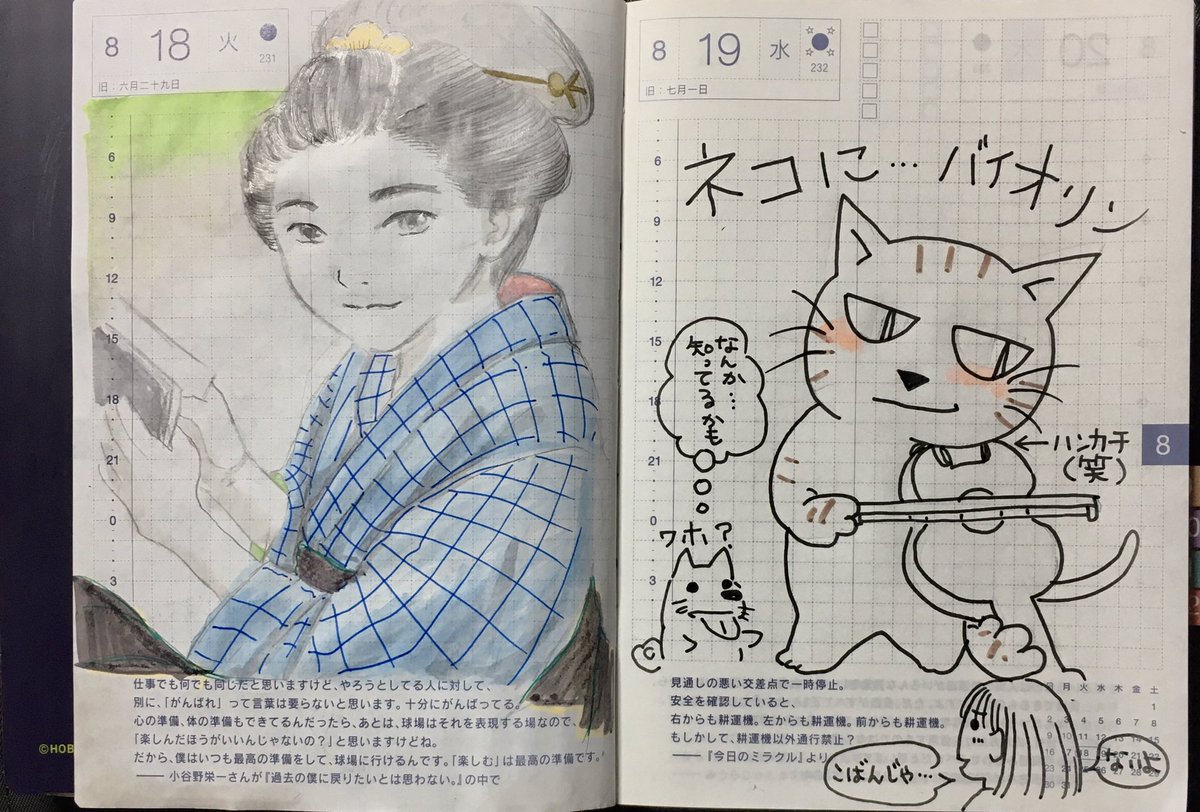 8 18 火
231
旧：六月二十九日
6
9
12
15
18
21
0
3
仕事でも何でも同じだと思いますけど、やろうとしてる人に対して、
別に、「がんばれ」って言葉は要らないと思います。十分にがんばってる。
心の準備、体の準備もできてるんだったら、あとは、球場はそれを表現する場なので、
「楽しんだほうがいいんじゃないの？」と思いますけどね。
だから、僕はいつも最高の準備をして、球場に行けるんです。「楽しむ」は最高の準備です。
―― 小谷野栄一さんが『過去の僕に戻りたいとは思わない。』の中で
©HOB
8 19 水
232
旧：七月一日
ネコに…バイオリン
6
9
12
15
18
21
0
3
なんか…
知ってるかも
ワホ?
←ハンカチ
(笑)
8
見通しの悪い交差点で一時停止。
安全を確認していると、
右からも耕運機。左からも耕運機。前からも耕運機。
もしかして、耕運機以外通行禁止？
――『今日のミラクル』より
月 火 水 木 金 土
1
2 3 4 5 6 7 8
9
14 15
16
23
こばんじゃ…
ないよ